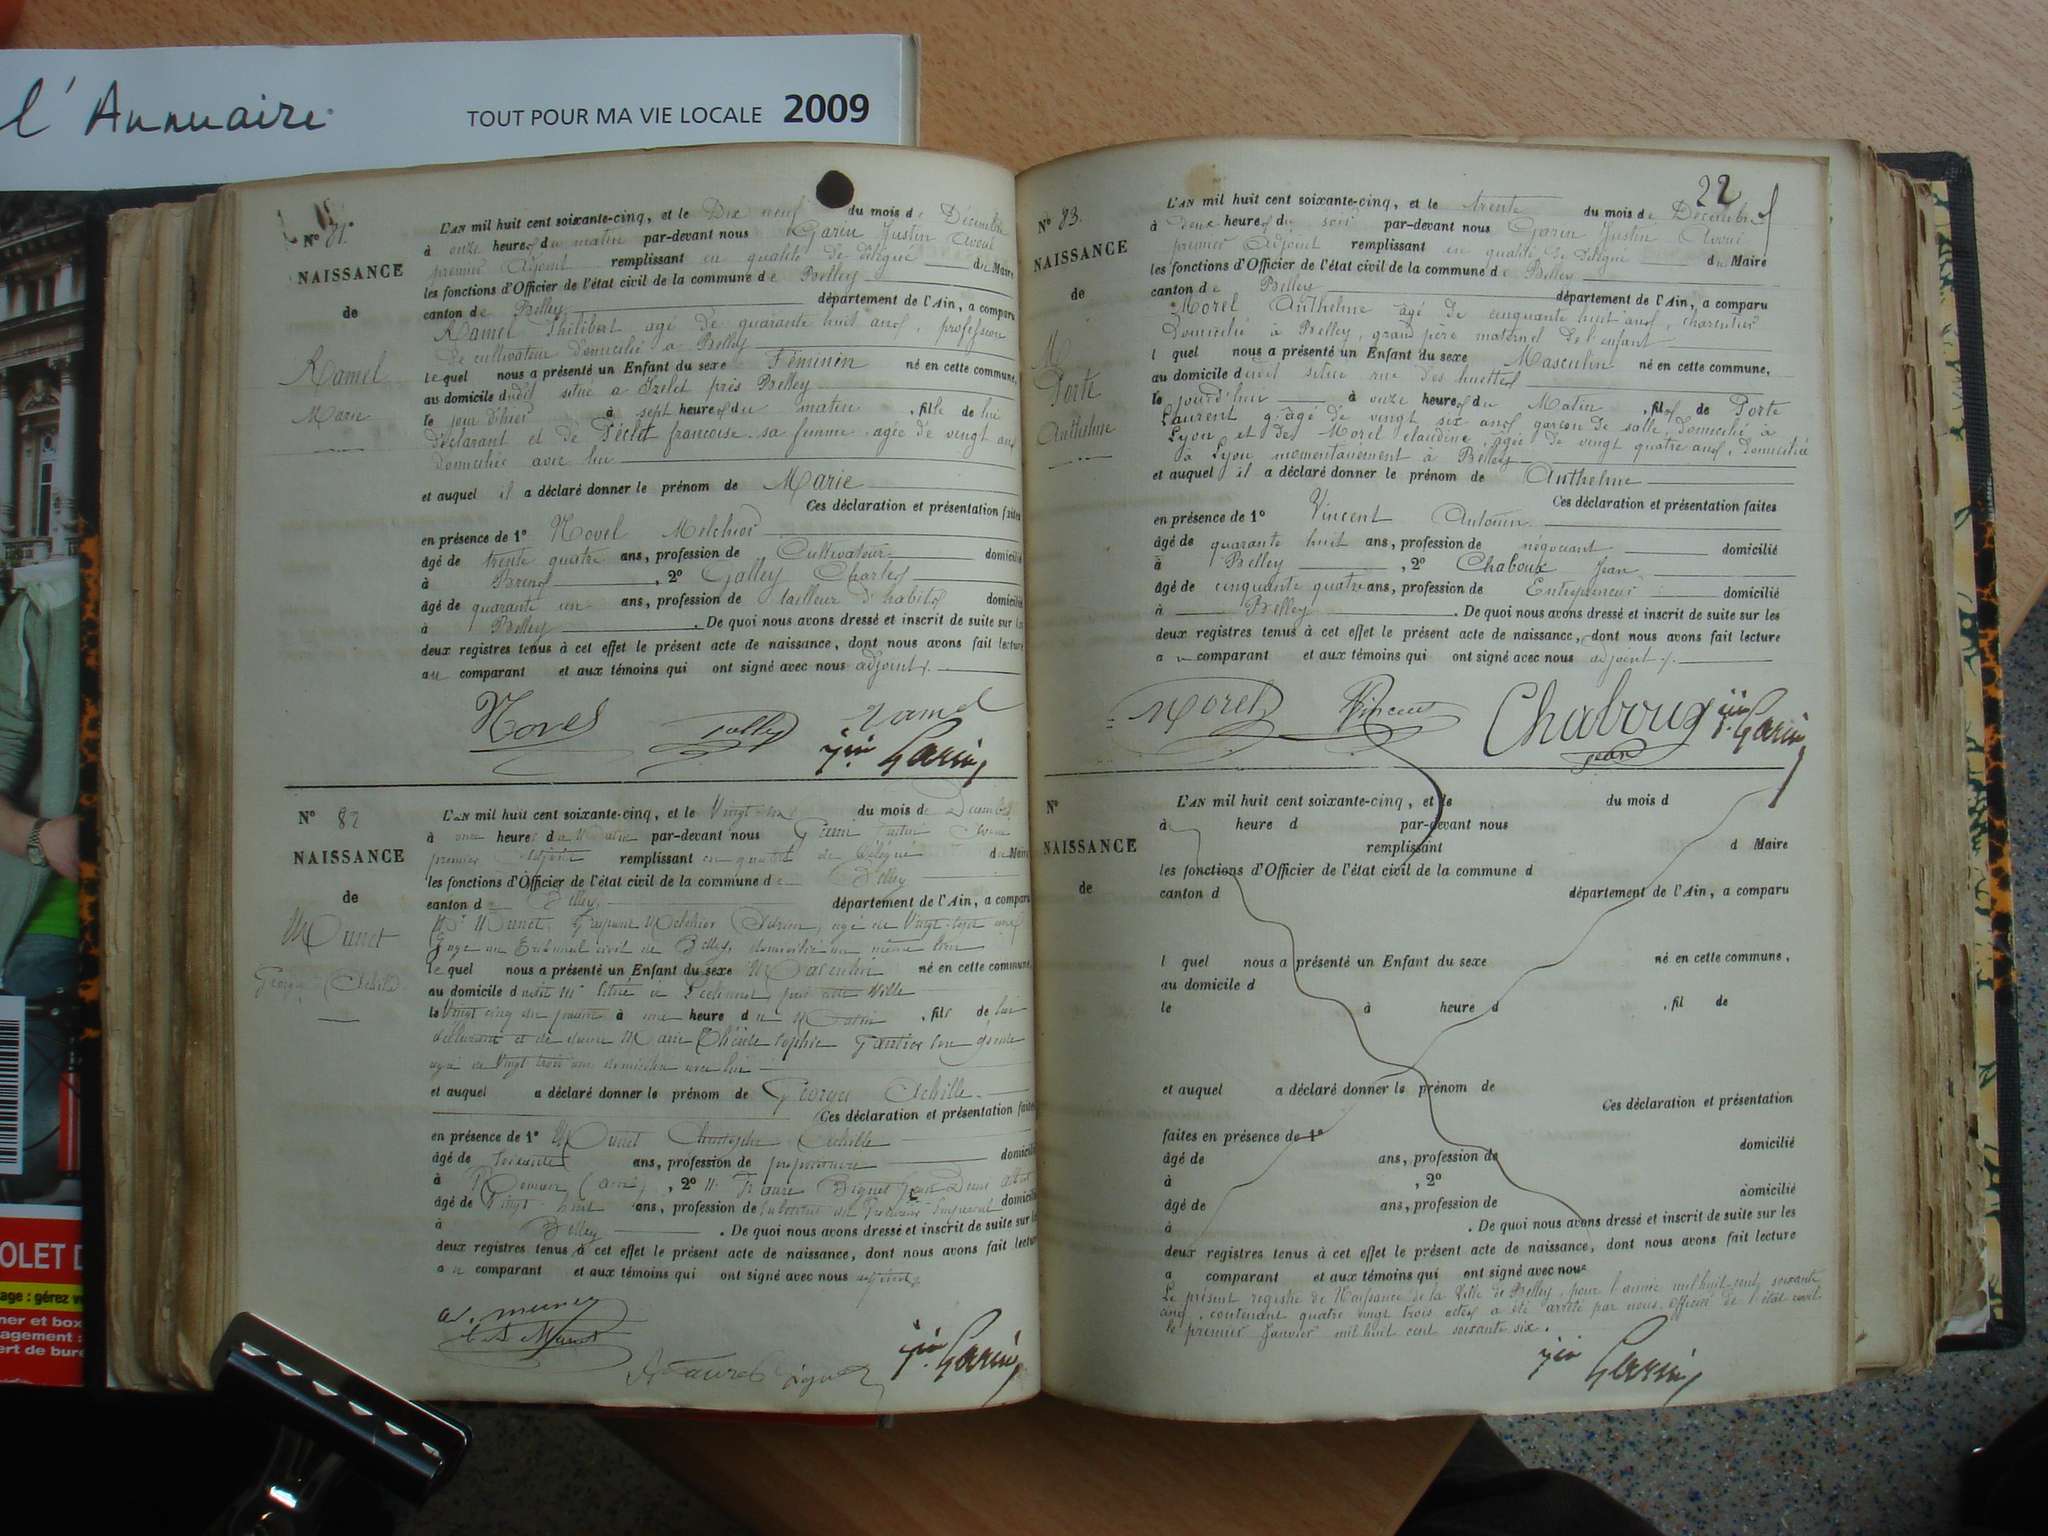 l'Annuaire
TOUT POUR MA VIE LOCALE 2009
OLET D
tage : gérez v
ner et box
agement :
ert de bure
N° 81.
NAISSANCE
de
Ramel
Marie
L'AN mil huit cent soixante-cinq, et le Dix neuf du mois de Décembre
à onze heures du matin par-devant nous Garin Justin Avoué
premier Adjoint remplissant en qualité de délégué du Maire
les fonctions d'Officier de l'état civil de la commune de Belley
canton de Belley département de l'Ain, a comparu
Ramel Philibert agé de quarante huit ans, profession
de cultivateur domicilié a Belley
le quel nous a présenté un Enfant du sexe Féminin né en cette commune,
au domicile dudit situé a près Belley
le jour d'hier à sept heures du matin, fille de lui
déclarant et de francoise sa femme agée de vingt ans
domiciliée avec lui
et auquel il a déclaré donner le prénom de Marie
Ces déclaration et présentation faites
en présence de 1° Novel Melchior
âgé de trente quatre ans, profession de Cultivateur domicilié
à Brens, 2° Galley Charles
âgé de quarante un ans, profession de tailleur d'habits domicilié
à Belley. De quoi nous avons dressé et inscrit de suite sur les
deux registres tenus à cet effet le présent acte de naissance, dont nous avons fait lecture
au comparant et aux témoins qui ont signé avec nous adjoint.
Novel Galley Ramel
jin Garin
N° 82
NAISSANCE
de
Munet
Georges Achille
L'AN mil huit cent soixante-cinq, et le Vingt du mois de Décembre
à une heure du par-devant nous Garin Justin Avoué
premier Adjoint remplissant en qualité de délégué du Maire
les fonctions d'Officier de l'état civil de la commune de Belley
canton de Belley département de l'Ain, a comparu
Mr Munet Melchior agé de Vingt sept ans
Juge au Tribunal civil de Belley, domicilié au même lieu
le quel nous a présenté un Enfant du sexe Masculin né en cette commune,
au domicile dudit Mr situé à près cette Ville
le Vingt cinq du à une heure du Matin, fils de lui
déclarant et de dame Marie sophie son épouse
agée de Vingt trois ans domiciliée avec lui
et auquel a déclaré donner le prénom de Georges Achille
Ces déclaration et présentation faites
en présence de 1° Munet Christophe Achille
âgé de soixante ans, profession de propriétaire domicilié
à (ain), 2° Mr Faure Biguet
âgé de Vingt huit ans, profession de Substitut du Procureur Impérial domicilié
à Belley. De quoi nous avons dressé et inscrit de suite sur les
deux registres tenus à cet effet le présent acte de naissance, dont nous avons fait lecture
au comparant et aux témoins qui ont signé avec nous adjoint.
a. munet
Munet
Faure Biguet jin Garin
22
N° 83.
NAISSANCE
de
M
Porte
Anthelme
L'AN mil huit cent soixante-cinq, et le trente du mois de Décembre
à deux heures du soir par-devant nous Garin Justin Avoué
premier Adjoint remplissant en qualité de délégué du Maire
les fonctions d'Officier de l'état civil de la commune de Belley
canton de Belley département de l'Ain, a comparu
Morel Anthelme agé de cinquante huit ans, charcutier
domicilié à Belley, grand père maternel de l'enfant
l quel nous a présenté un Enfant du sexe Masculin né en cette commune,
au domicile dudit situé rue des huettes
le jourd'hui à onze heures du Matin, fils de Porte
Laurent agé de vingt six ans garçon de salle, domicilié à
Lyon et de Morel claudine, agée de vingt quatre ans, domiciliée
à Lyon momentanement à Belley
et auquel il a déclaré donner le prénom de Anthelme
Ces déclaration et présentation faites
en présence de 1° Vincent Antoine
âgé de quarante huit ans, profession de négociant domicilié
à Belley, 2° Chaboux Jean
âgé de cinquante quatre ans, profession de Entrepreneur domicilié
à Belley. De quoi nous avons dressé et inscrit de suite sur les
deux registres tenus à cet effet le présent acte de naissance, dont nous avons fait lecture
au comparant et aux témoins qui ont signé avec nous adjoint.
Morel Vincent Chaboux jin Garin
jean
N°
NAISSANCE
de
L'AN mil huit cent soixante-cinq, et le du mois d
à heure d par-devant nous
remplissant d Maire
les fonctions d'Officier de l'état civil de la commune d
canton d département de l'Ain, a comparu
l quel nous a présenté un Enfant du sexe né en cette commune,
au domicile d
le à heure d, fil de
et auquel a déclaré donner le prénom de
Ces déclaration et présentation
faites en présence de 1°
âgé de ans, profession de domicilié
à , 2°
âgé de ans, profession de domicilié
à . De quoi nous avons dressé et inscrit de suite sur les
deux registres tenus à cet effet le présent acte de naissance, dont nous avons fait lecture
a comparant et aux témoins qui ont signé avec nous
Le présent registre de Naissance de la Ville de Belley, pour l'année mil huit cent soixante
cinq, contenant quatre vingt trois actes a été arrêté par nous officier de l'état civil
le premier Janvier mil huit cent soixante six.
jin Garin